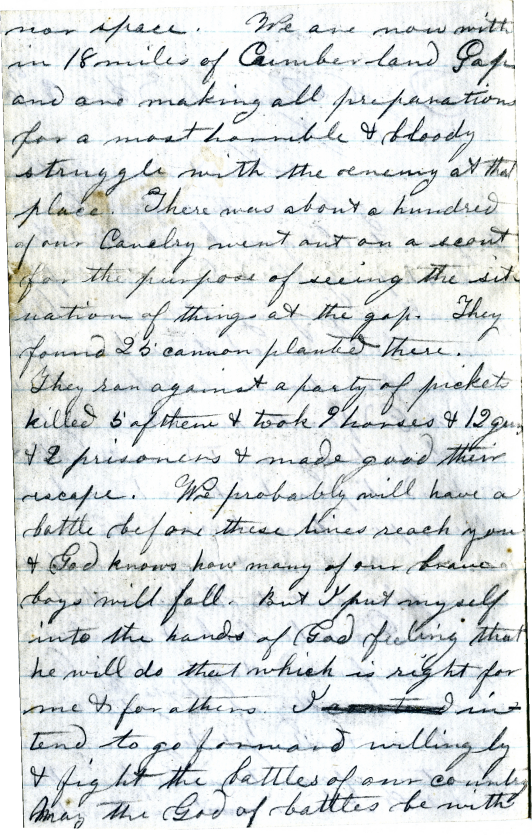 nor space. We are now with
in 18 miles of Cumber land Gap
and are making all preparations
for a most horrible & bloody
struggle with the enemy at that
place. There was about a hundred
of our Cavelry went out on a scout
for the purpos of seeing the sit
uation of things at the gap. They
found 25 cannon planted there.
They ran against a party of pickets
killed 5 of them & took 9 horses & 12 guns
& 2 prisoners & made good their
escape. We probably will have a
battle before these lines reach you
& God knows how many of our brave
boys will fall. But I put myself
into the hands of God feeling that
he will do that which is right for
me & for others. I in-
tend to go forward willingly
& fight the battles of our country
May the God of battles be with